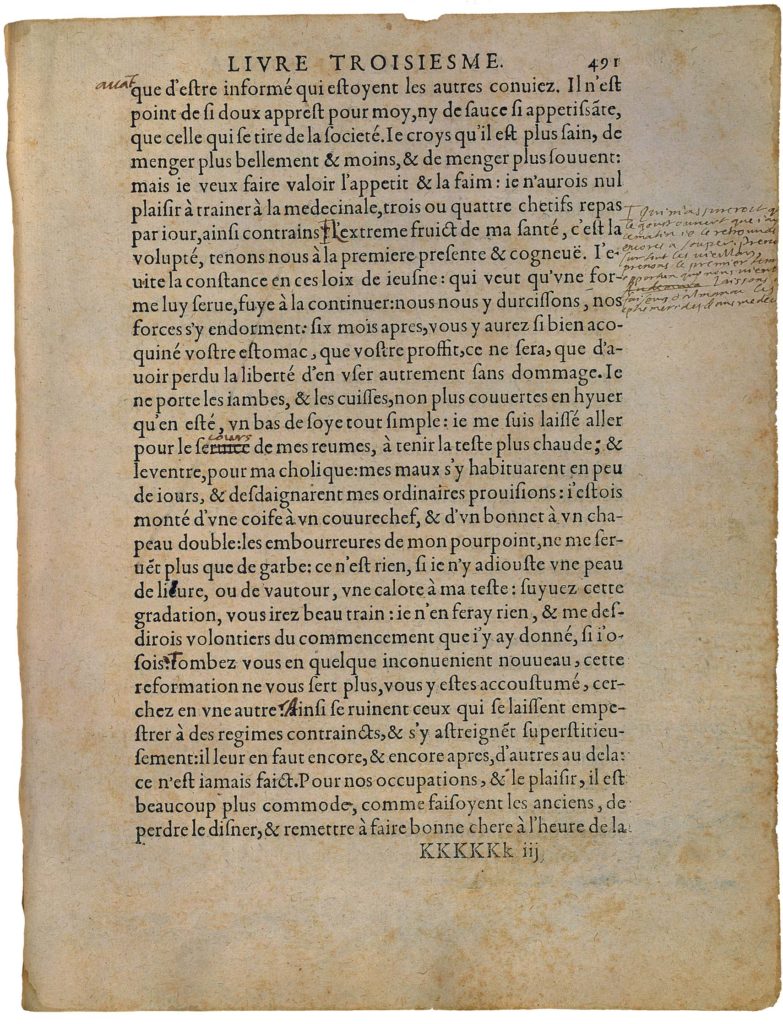 LIVRE TROISIESME. 491
auāt
que d'eſtre informé qui eſtoyent les autres conuiez. Il n'eſt
point de ſi doux appreſt pour moy, ny de ſauce ſi appetiſſāte,
que celle qui ſe tire de la ſocieté. Ie croys qu'il eſt plus ſain, de
menger plus bellement & moins, & de menger plus ſouuent:
mais ie veux faire valoir l'appetit & la faim: ie n'aurois nul
plaiſir à trainer à la medecinale, trois ou quattre chetifs repas
par iour, ainſi contrains L'extreme fruict de ma santé, c'eſt la
volupté, tenons nous à la premiere preſente & cogneuë. I'e-
uite la constance en ces loix de ieuſne: qui veut qu'vne for-
me luy ſerue, fuye à la continuer: nous nous y durciſſons, nos
forces s'y endorment: ſix mois apres, vous y aurez ſi bien aco-
quiné voſtre eſtomac, que voſtre proffit, ce ne ſera, que d'a-
uoir perdu la liberté d'en vſer autrement ſans dommage. Ie
ne porte les iambes, & les cuiſſes, non plus couuertes en hyuer
qu'en eſté, vn bas de ſoye tout ſimple: ie me ſuis laiſſé aller
pour le ſecours de mes reumes, à tenir la teſte plus chaude; &
le ventre, pour ma cholique: mes maux s'y habituarent en peu
de iours, & deſdaignarent mes ordinaires prouiſions: i'eſtois
monté d'vne coife à vn couurechef, & d'vn bonnet à vn cha-
peau double: les embourreures de mon pourpoint, ne me ſer-
uēt plus que de garbe: ce n'eſt rien, ſi ie n'y adiouſte vne peau
de lieure, ou de vautour, vne calote à ma teſte: ſuyuez cette
gradation, vous irez beau train: ie n'en feray rien, & me deſ-
dirois volontiers du commencement que i'y ay donné, ſi i'o-
ſois. Tombez vous en quelque inconuenient nouueau, cette
reformation ne vous ſert plus, vous y eſtes accouſtumé, cer-
chez en vne autre: Ainſi ſe ruinent ceux qui ſe laiſſent empe-
ſtrer à des regimes contraincts, & s'y aſtreignēt ſuperſtitieu-
ſement: il leur en faut encore, & encore apres, d'autres au dela:
ce n'eſt iamais faict. Pour nos occupations, & le plaiſir, il eſt
beaucoup plus commode, comme faiſoyent les anciens, de
perdre le diſner, & remettre à faire bonne chere à l'heure de la
KKKKKk iij
Qui m'assureroit
le goust ouvert que i'ay
ce matin ie le
encores a souper. Prenons
surtout les vieillars
prenons le premier
opportun qui nous vient
Laissons